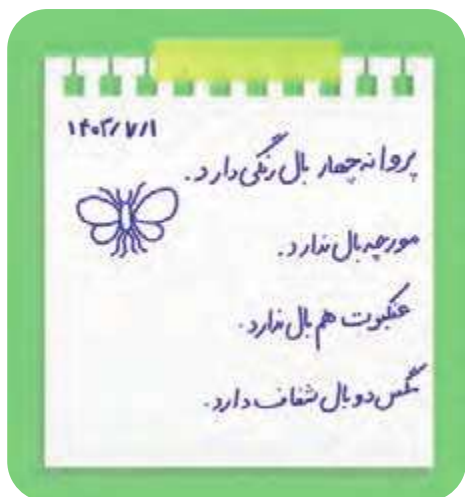 ۱۴۰۳/۷/۱
پروانه چهار بال رنگی دارد.
مورچه بال ندارد.
عنکبوت هم بال ندارد.
مگس دو بال شفاف دارد.